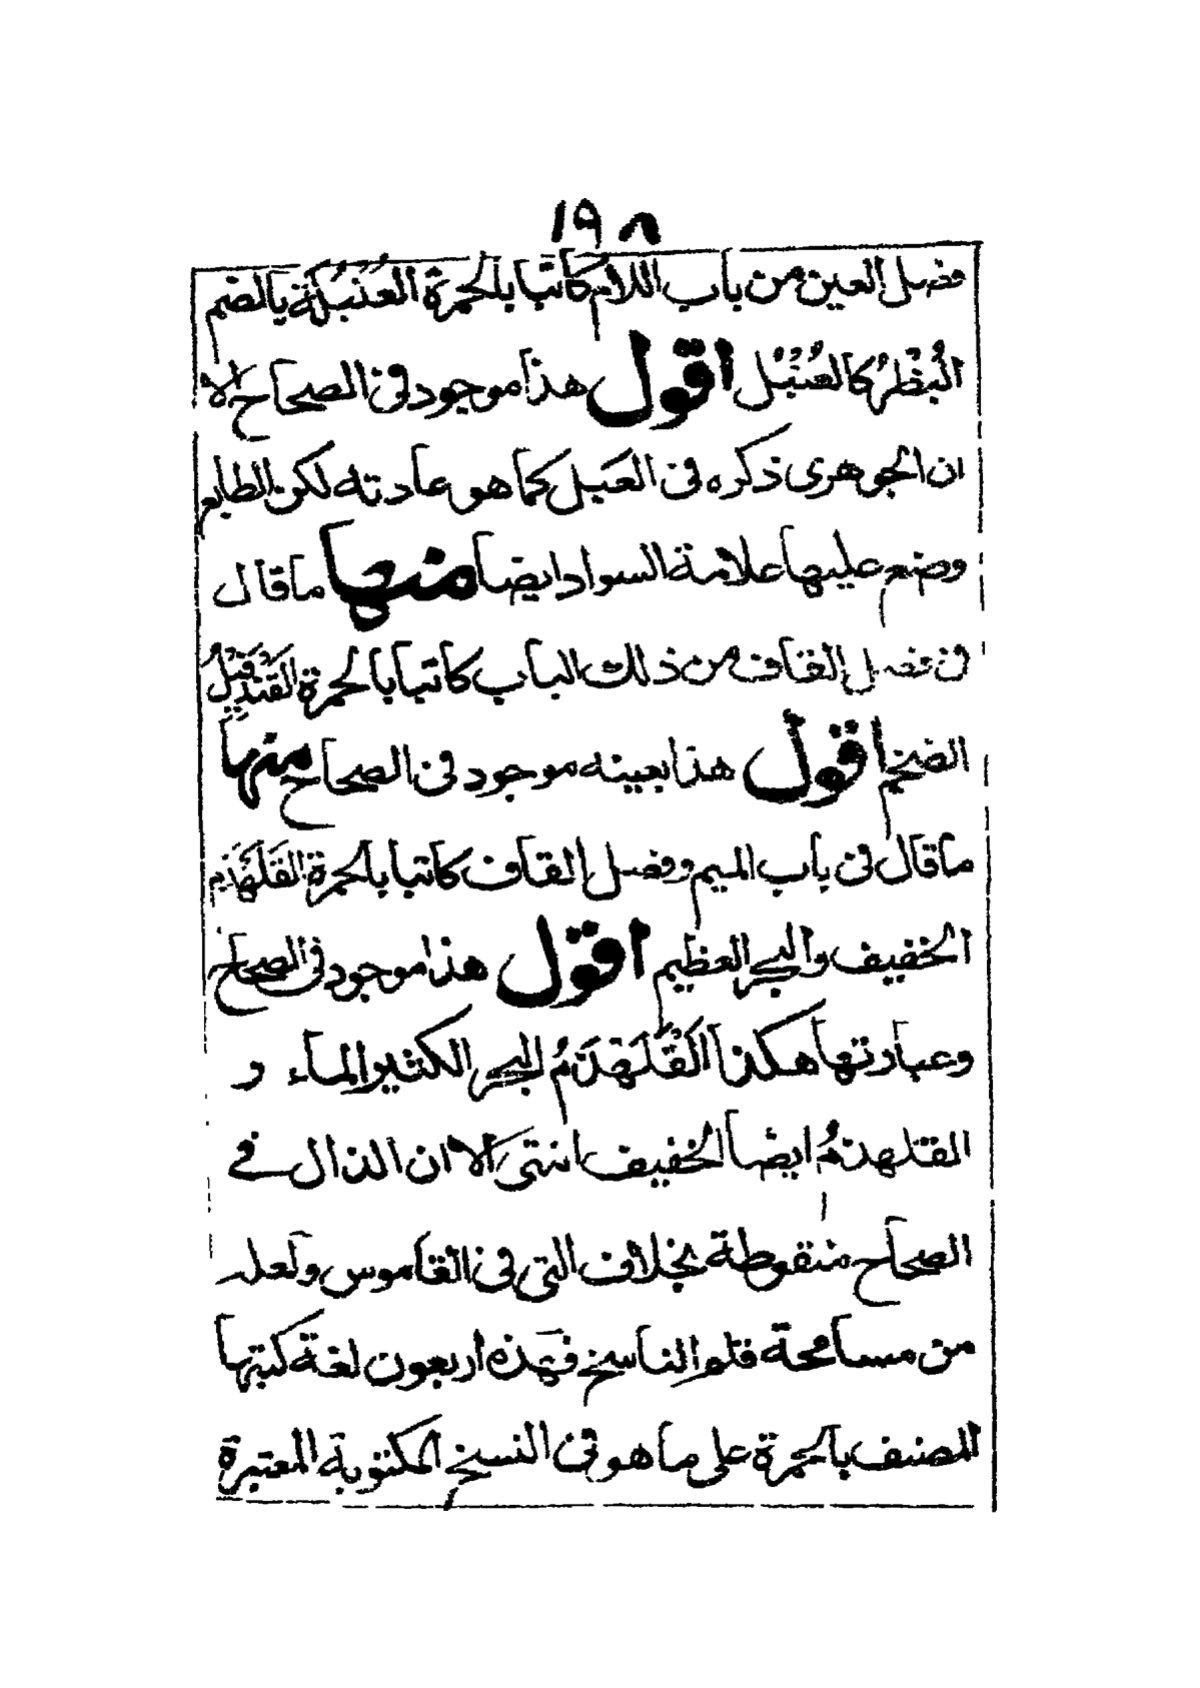 ١٩٨
فصل العين من باب اللام كاتبا بالحمرة العُنبُلَة بالضم
البُظْرُ كالعُنْبُل اقول هذا موجود فى الصحاح الا
ان الجوهرى ذكره فى العبل كما هو عادته لكن الطابع
وضع عليها علامة السواد ايضا منها ما قال
فى فصل القاف من ذلك الباب كاتبا بالحمرة القَنْدَفِيلُ
الضخم اقول هذا بعينه موجود فى الصحاح منها
ما قال فى باب الميم وفصل القاف كاتبا بالحمرة القَلَهْذَم
الخفيف والبحر العظيم اقول هذا موجود فى الصحاح
وعبارتها هكذا القَلَهْذَمُ البحر الكثير الماء و
القلهذمُ ايضا الخفيف انتهى الا ان الذال فے
الصحاح منقوطة بخلاف التى فى القاموس ولعله
من مسامحة قلم الناسخ فهذه اربعون لغة كتبتها
المصنف بالحمرة على ما هو فى النسخ المكتوبة المعتبرة